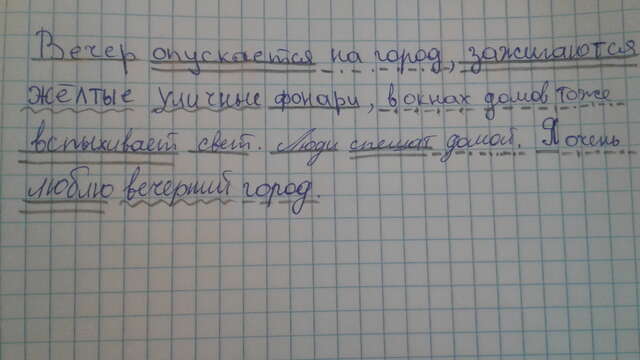 Вечер опускается на город, зажигаются
жёлтые уличные фонари, в окнах домов тоже
вспыхивает свет. Люди спешат домой. Я очень
люблю вечерний город.